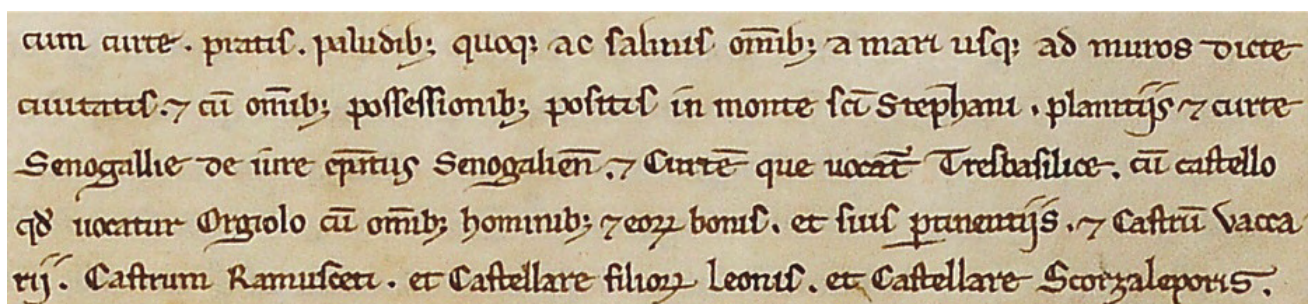 cum curte. pratis. paludib; quoq; ac salinis om̄ib; a mari usq; ad muros dicte
ciuitatis. ⁊ cū om̄ib; possessionib; positis in monte sc̄i Steph̄ani. planitijs ⁊ curte
Senogallie de iure ep̄itus Senogalien̄. ⁊ Curtē que uocat̄ Tresbasilice. cū castello
qd̄ uocatur Orgiolo cū om̄ib; hominib; ⁊ eoꝝ bonis. et suis ꝑtinentijs. ⁊ Castrū Vacca
rij. Castrum Ramusceti. et Castellare filioꝝ Leonis. et Castellare Scorzaleporis.